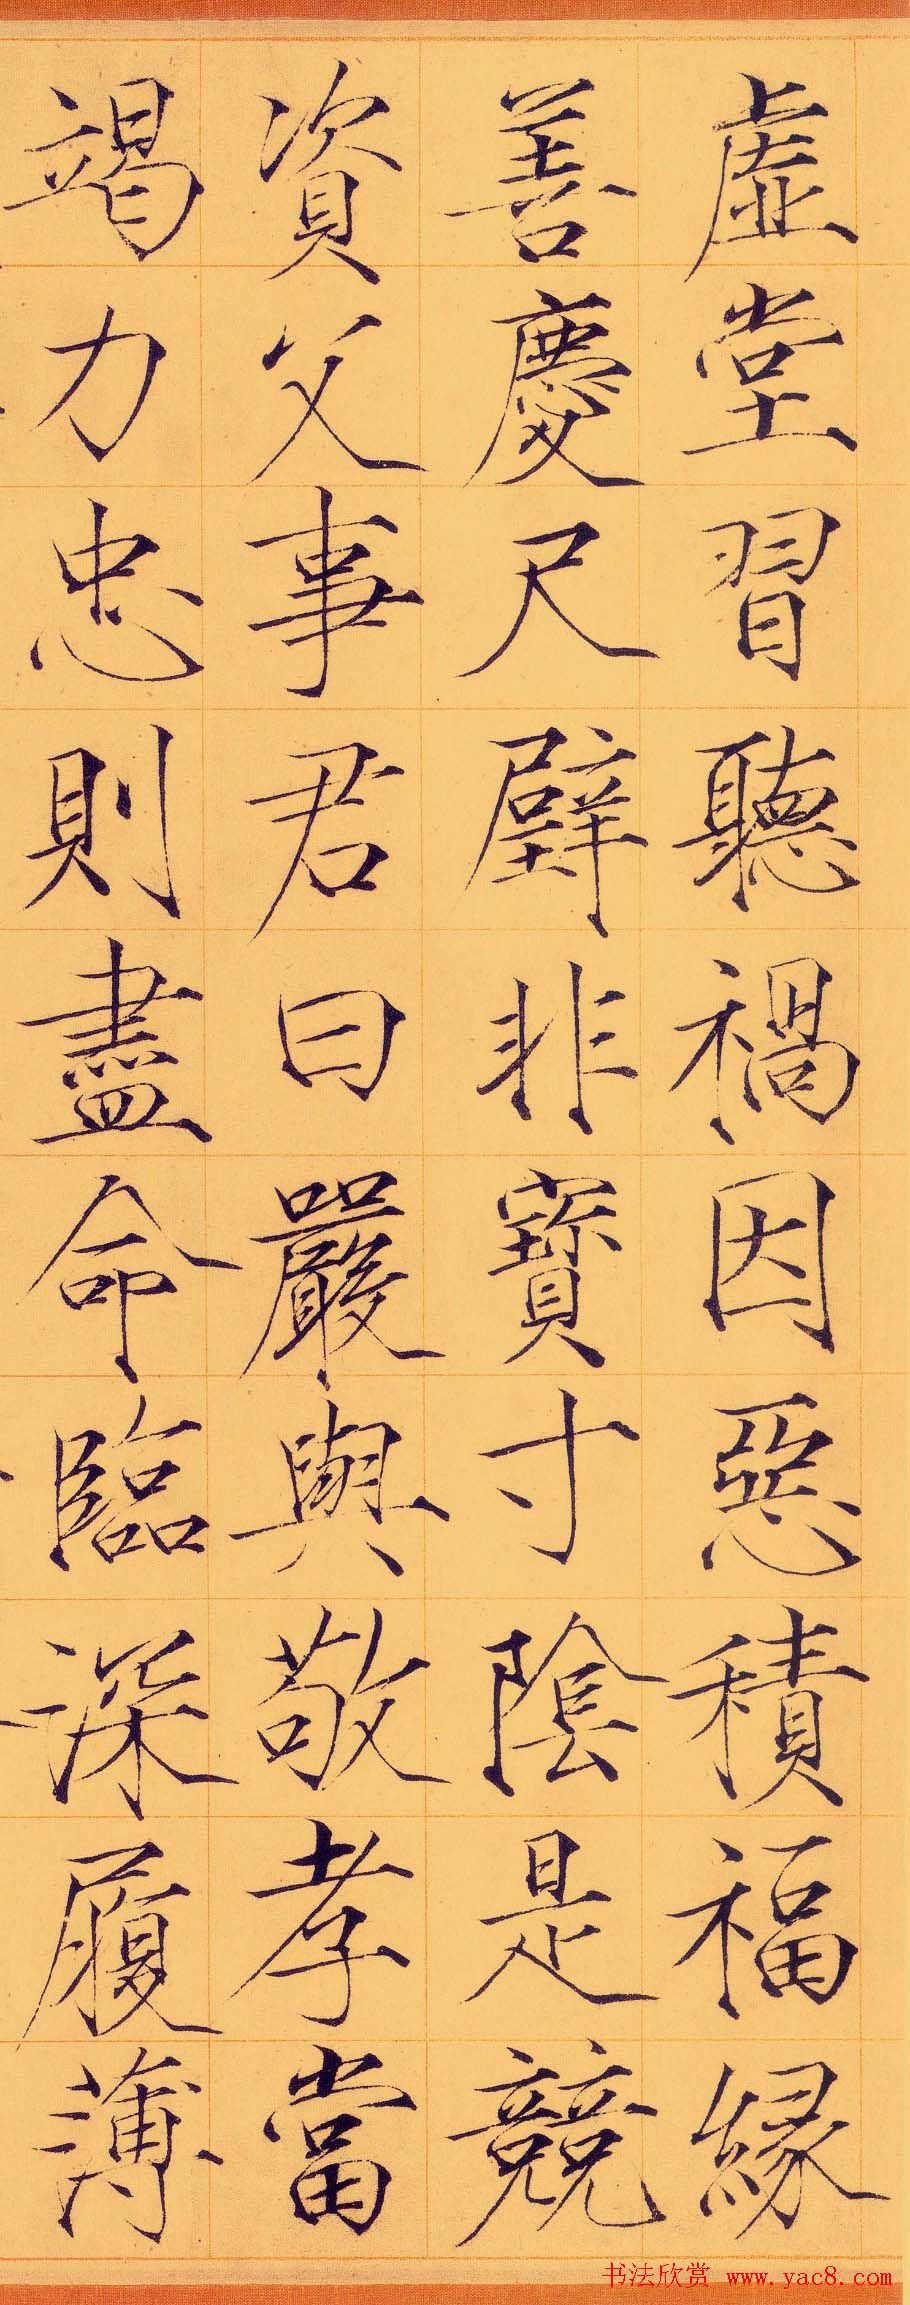 虛堂習聽禍因惡積福緣
善慶尺璧非寶寸陰是競
資父事君曰嚴與敬孝當
竭力忠則盡命臨深履薄
书法欣赏 www.yac8.com